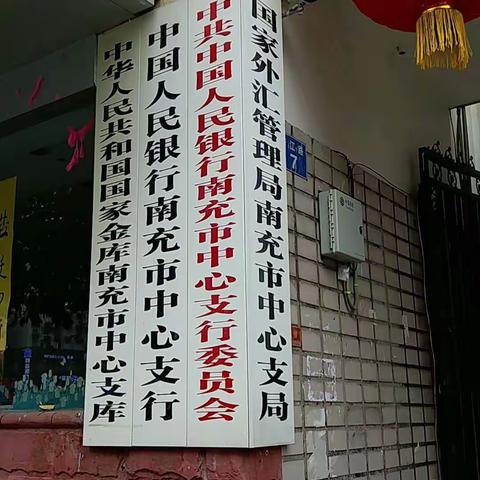 中华人民共和国国家金库南充市中心支库
中国人民银行南充市中心支行
中共中国人民银行南充市中心支行委员会
国家外汇管理局南充市中心支局
7